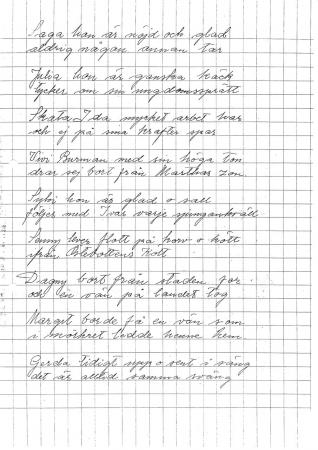 Saga hon är nöjd och glad
aldrig någon annan tar
Julia hon är ganska käck
tycker om sin ungdomssprätt
Skata Ida mycket arbet har
och ej på sina krafter spar
Vivi Burman med sin höga ton
drar sej bort från Marthas zon.
Sylvi hon är glad o snäll
följer med Ivar varje gumgankväll
Senny lever flott på korv o kött
ifrån Böle
Dagny bort från staden for
och en vän på landet tog
Margit borde få en vän som
i mörkret ledde henne hem.
Gerda tidigt upp o sent i säng
det är alltid samma sväng